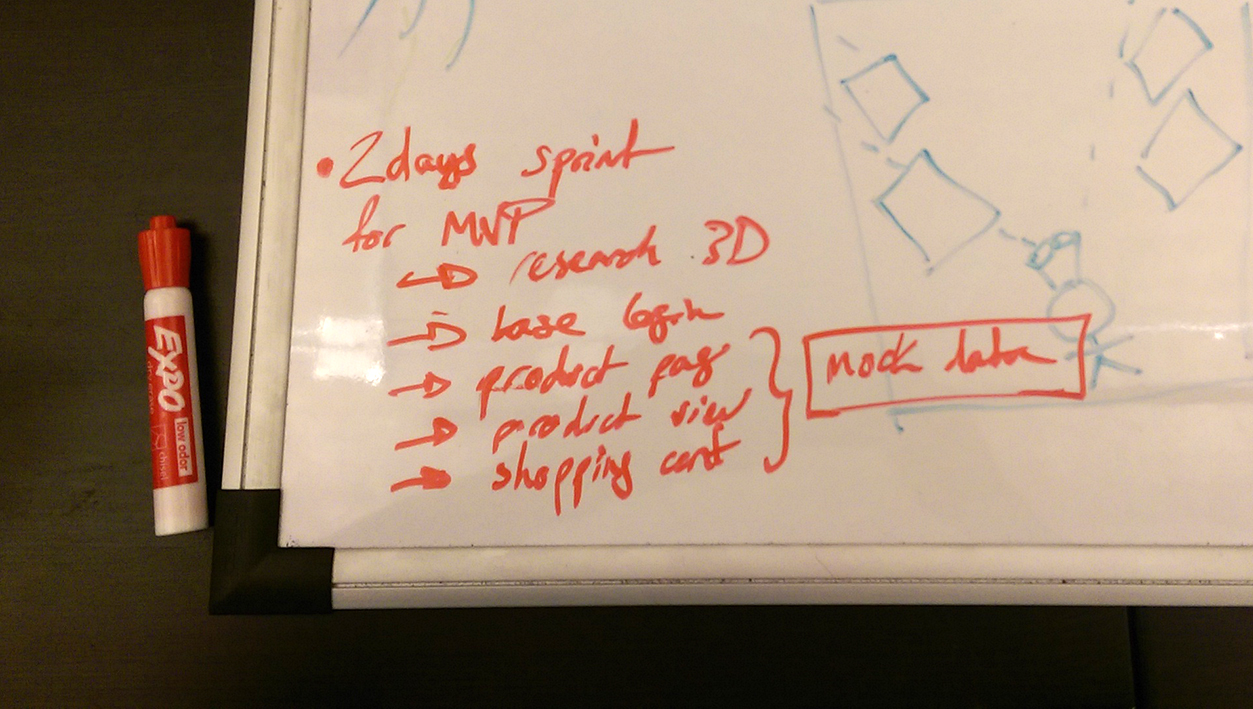 • 2 days sprint
for MVP
→ research 3D
→ base login
→ product page
→ product view
→ shopping cart
} mock data
EXPO
low odor